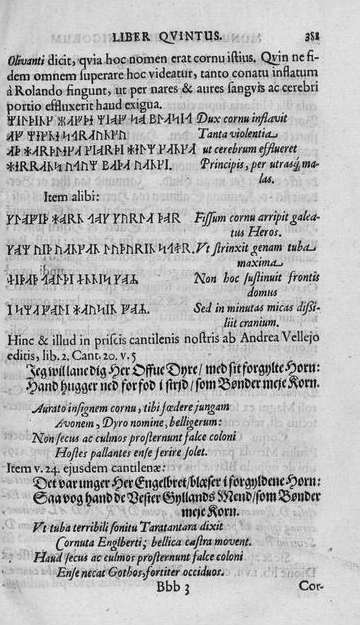 LIBER QVINTUS. 381
Olivanti dicit, qvia hoc nomen erat cornu istius. Qvin ne fi-
dem omnem superare hoc videatur, tanto conatu inflatum
à Rolando fingunt, ut per nares & aures sangvis ac cerebri
portio effluxerit haud exigua.
Dux cornu inflavit
Tanta violentia
ut cerebrum efflueret
Principis, per utrasq; ma-
las.
Item alibi:
Fissum cornu arripit galea-
tus Heros.
Vt strinxit genam tuba
maxima
Non hoc sustinuit frontis
domus
Sed in minutas micas dissi-
liit cranium.
Hinc & illud in priscis cantilenis nostris ab Andrea Vellejo
editis, lib. 2. Cant. 20. v. 5
Jeg vil lane dig Her Offue Dyre/ med sit forgylte Horn:
Hand hugger ned for fod i strid/ som Bønder meje Korn.
Aurato insignem cornu, tibi fœdere jungam
Avonem, Dyro nomine, belligerum:
Non secus ac culmos prosternunt falce coloni
Hostes pallantes ense ferire solet.
Item v. 24. ejusdem cantilenæ:
Det var unger Her Engelbret/ blæser i forgyldene Horn:
Saa vog hand de Vester Gyllands Mend/ som Bønder
meje Korn.
Vt tuba terribili sonitu Taratantara dixit
Cornuta Englberti; bellica castra movent.
Haud secus ac culmos prosternunt falce coloni
Ense necat Gothos, fortiter occiduos.
Bbb 3 Cor-